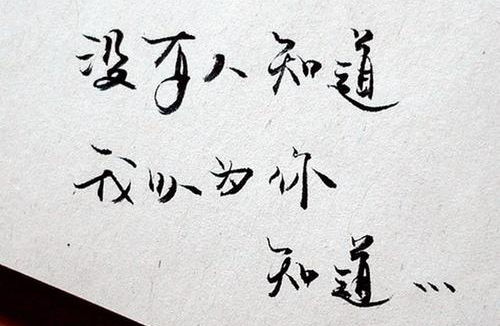 没有人知道
我以为你
知道...